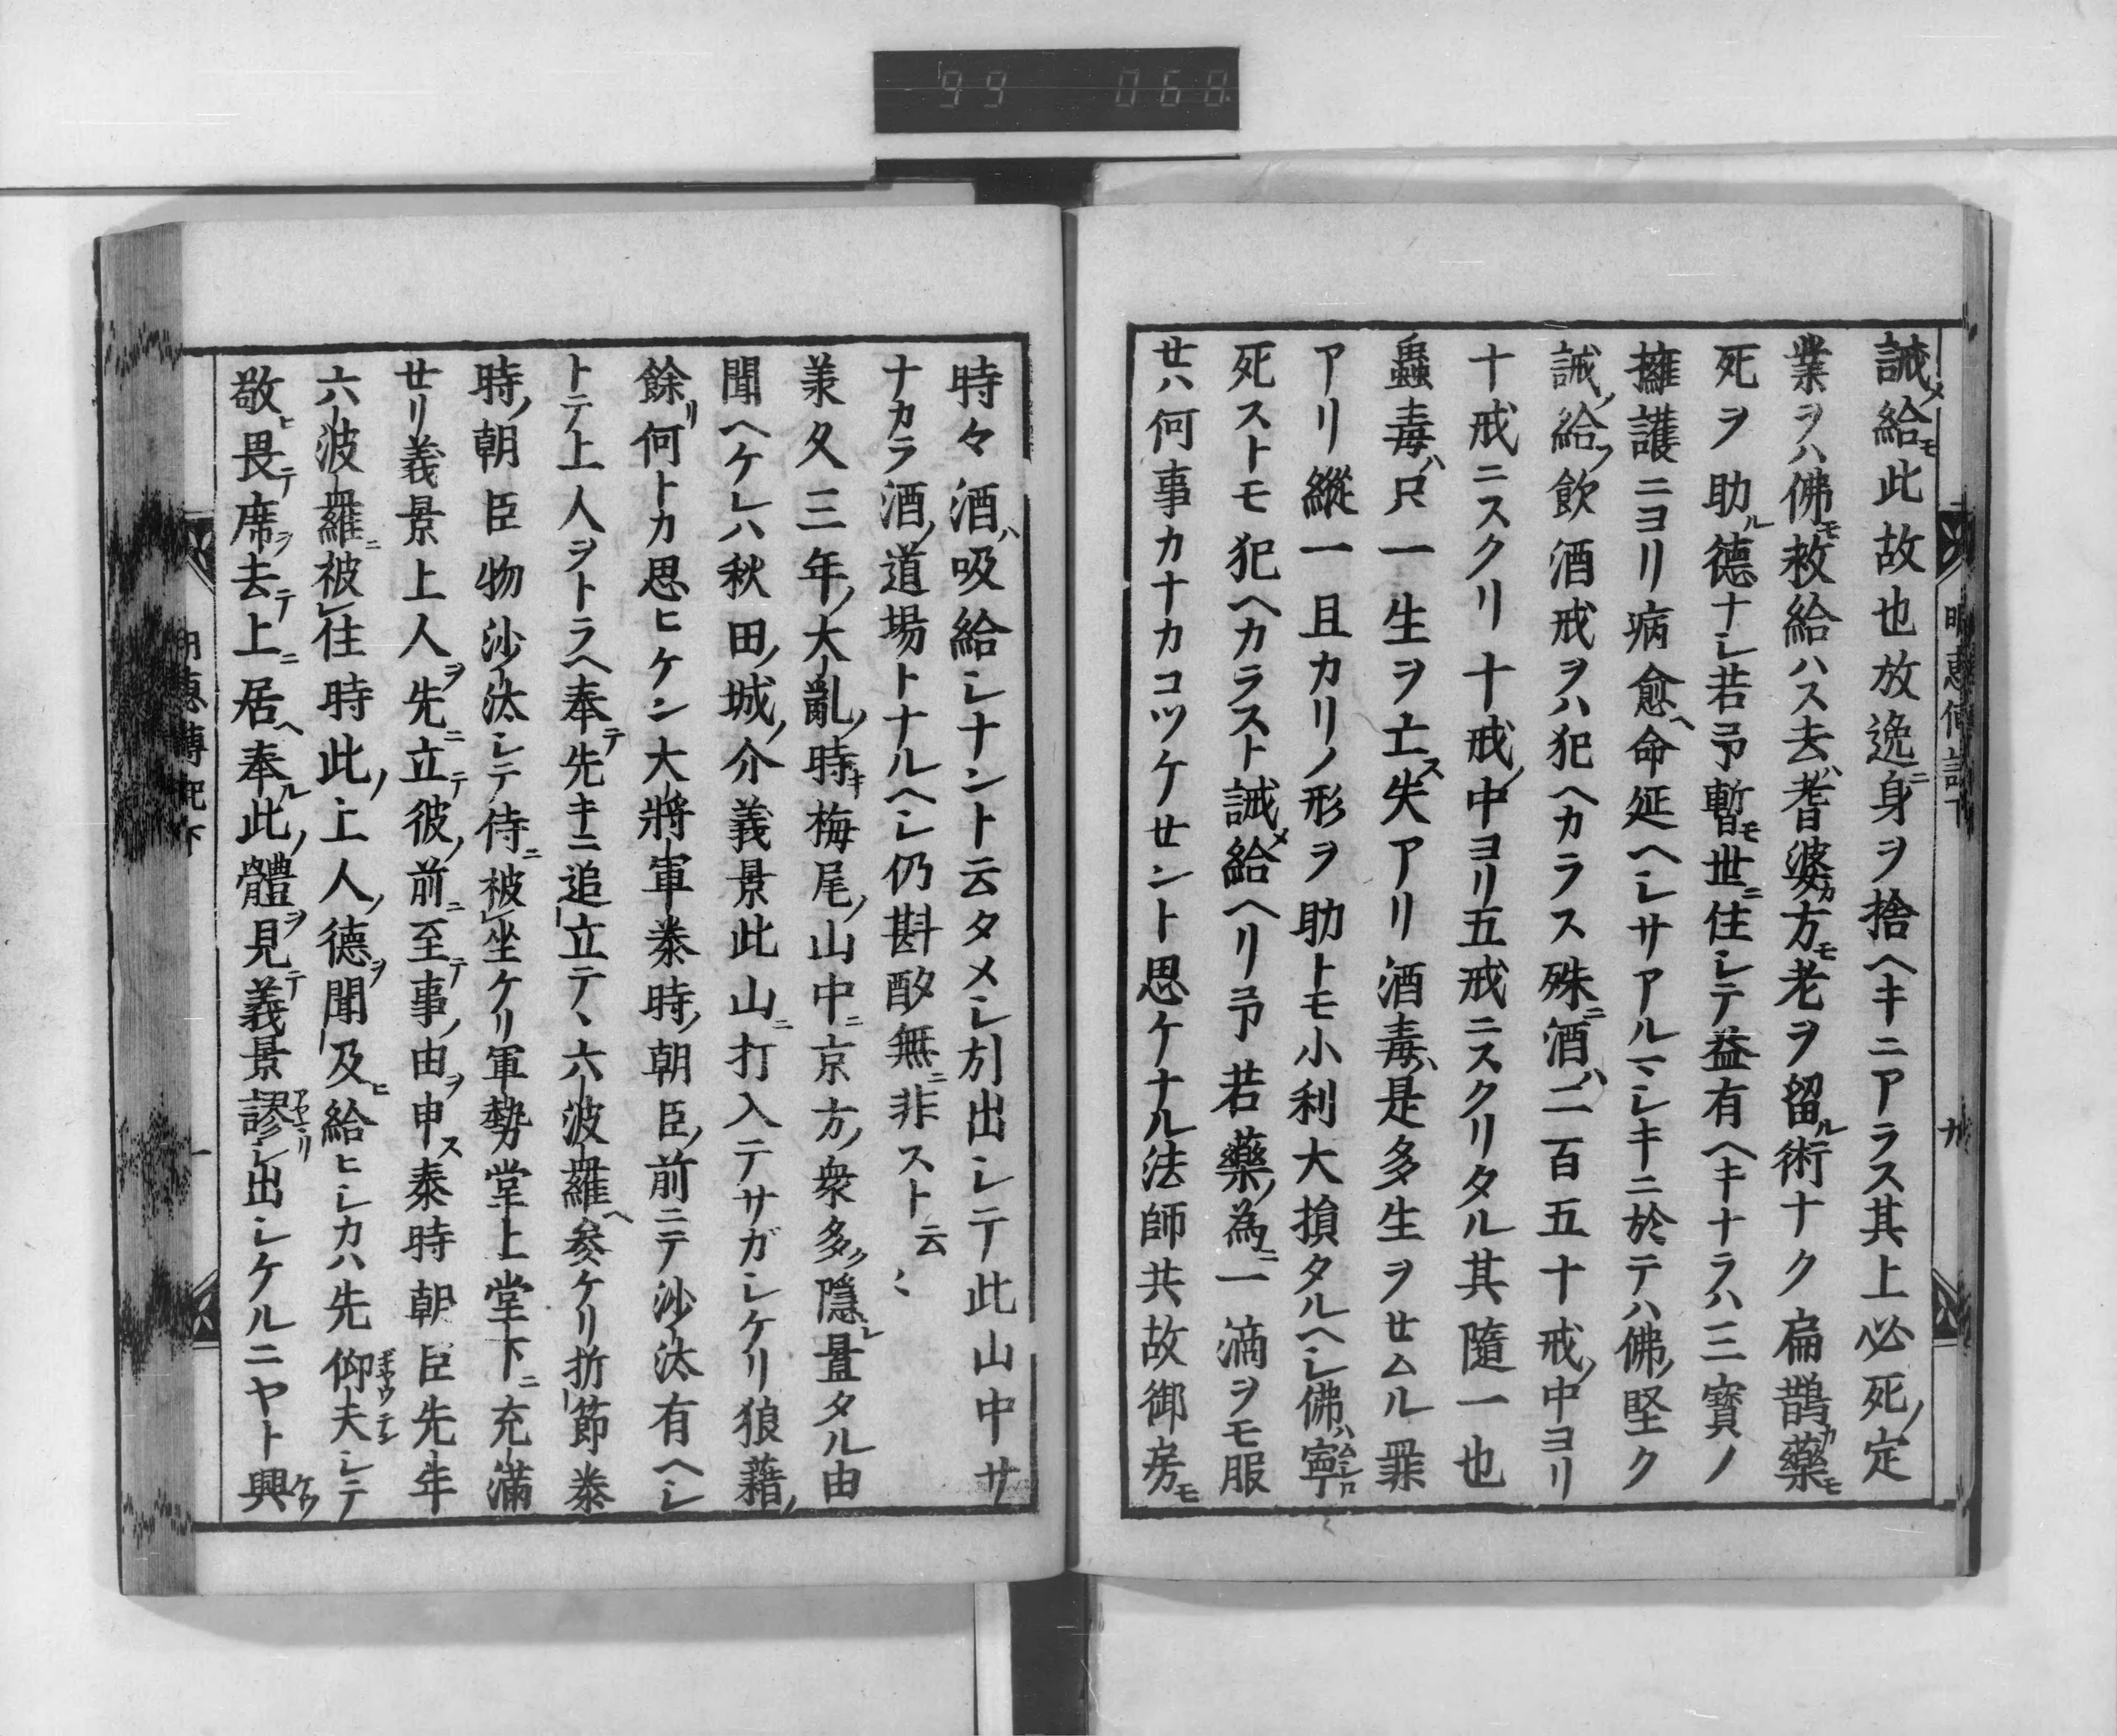 99 068
誡メ給モ此故也放逸ニ身ヲ捨ヘキニアラス其上必死ノ定
業ヲハ佛モ救給ハス去ハ耆婆カ方モ老ヲ留ル術ナク扁鵲カ藥モ
死ヲ助ル德ナシ若予暫モ世ニ住シテ益有ヘキナラハ三寳ノ
擁護ニヨリ病愈ヘ命延ヘシサアルマシキニ於テハ佛ノ堅ク
誡メ給フ飲酒戒ヲハ犯ヘカラス殊ニ酒ハ二百五十戒ノ中ヨリ
十戒ニスクリ十戒ノ中ヨリ五戒ニスクリタル其隨一也
蟲毒ハ只一生ヲ亡ス失アリ酒毒ハ是多生ヲせムル罪
アリ縱一旦カリノ形ヲ助トモ小利大損タルヘシ佛ハ寧ムシロ
死ストモ犯ヘカラスト誡メ給ヘリ予若藥ノ為ニ一滴ヲモ服
せハ何事カナカコツケせント思ケナル法師共故御房モ
明惠傳記下
時々酒ハ吸給シナント云タメシ引出シテ此山中サ
ナカラ酒ノ道場トナルヘシ仍斟酌無ニ非スト云〻
羕久三年ノ大亂ノ時キ梅尾ノ山中ニ京方ノ衆多ク隱レ置タル由
聞ヘケレハ秋田ノ城ノ介義景此山ニ打入テサガシケリ狼藉ノ
餘リ何トカ思ヒケン大將軍泰時ノ朝臣ノ前ニテ沙汰有ヘシ
トテ上人ヲトラヘ奉テ先キニ追立テヽ六波羅ヘ參ケリ折節泰
時ノ朝臣物沙汰シテ侍ニ被坐ケリ軍勢堂上堂下ニ充滿
せリ義景上人ヲ先ニ立テ彼ノ前ニ至テ事ノ由ヲ申ス泰時朝臣先年
六波羅ニ被住時此ノ上人ノ德ヲ聞及ヒ給ヒシカハ先仰ギヤウ夫テンシテ
敬ヒ畏テ席ヲ去テ上ニ居ヘ奉ル此ノ體ヲ見テ義景謬アヤマリシ出シケルニヤト興ケウ
明惠傳記下